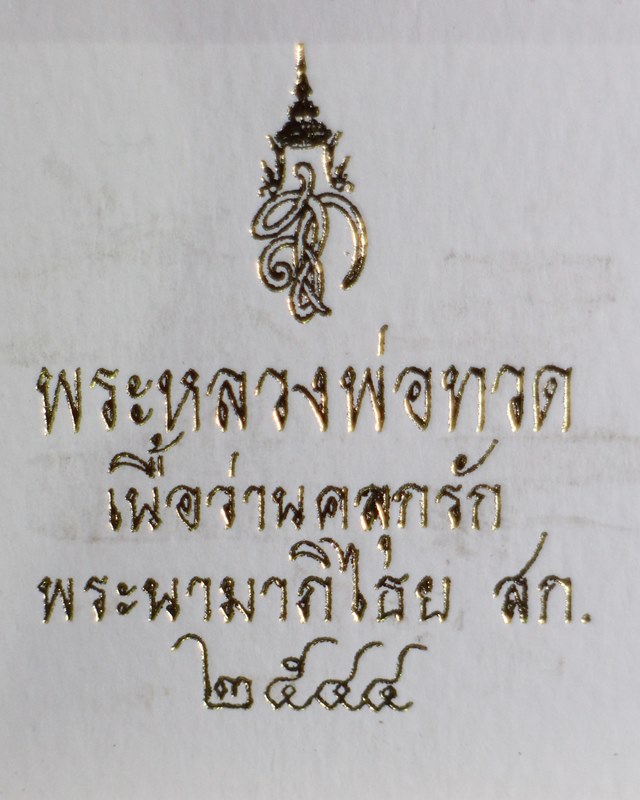 พระหลวงพ่อทวด
เนื้อว่านคลุกรัก
พระนามาภิไธย สก.
๒๕๔๔